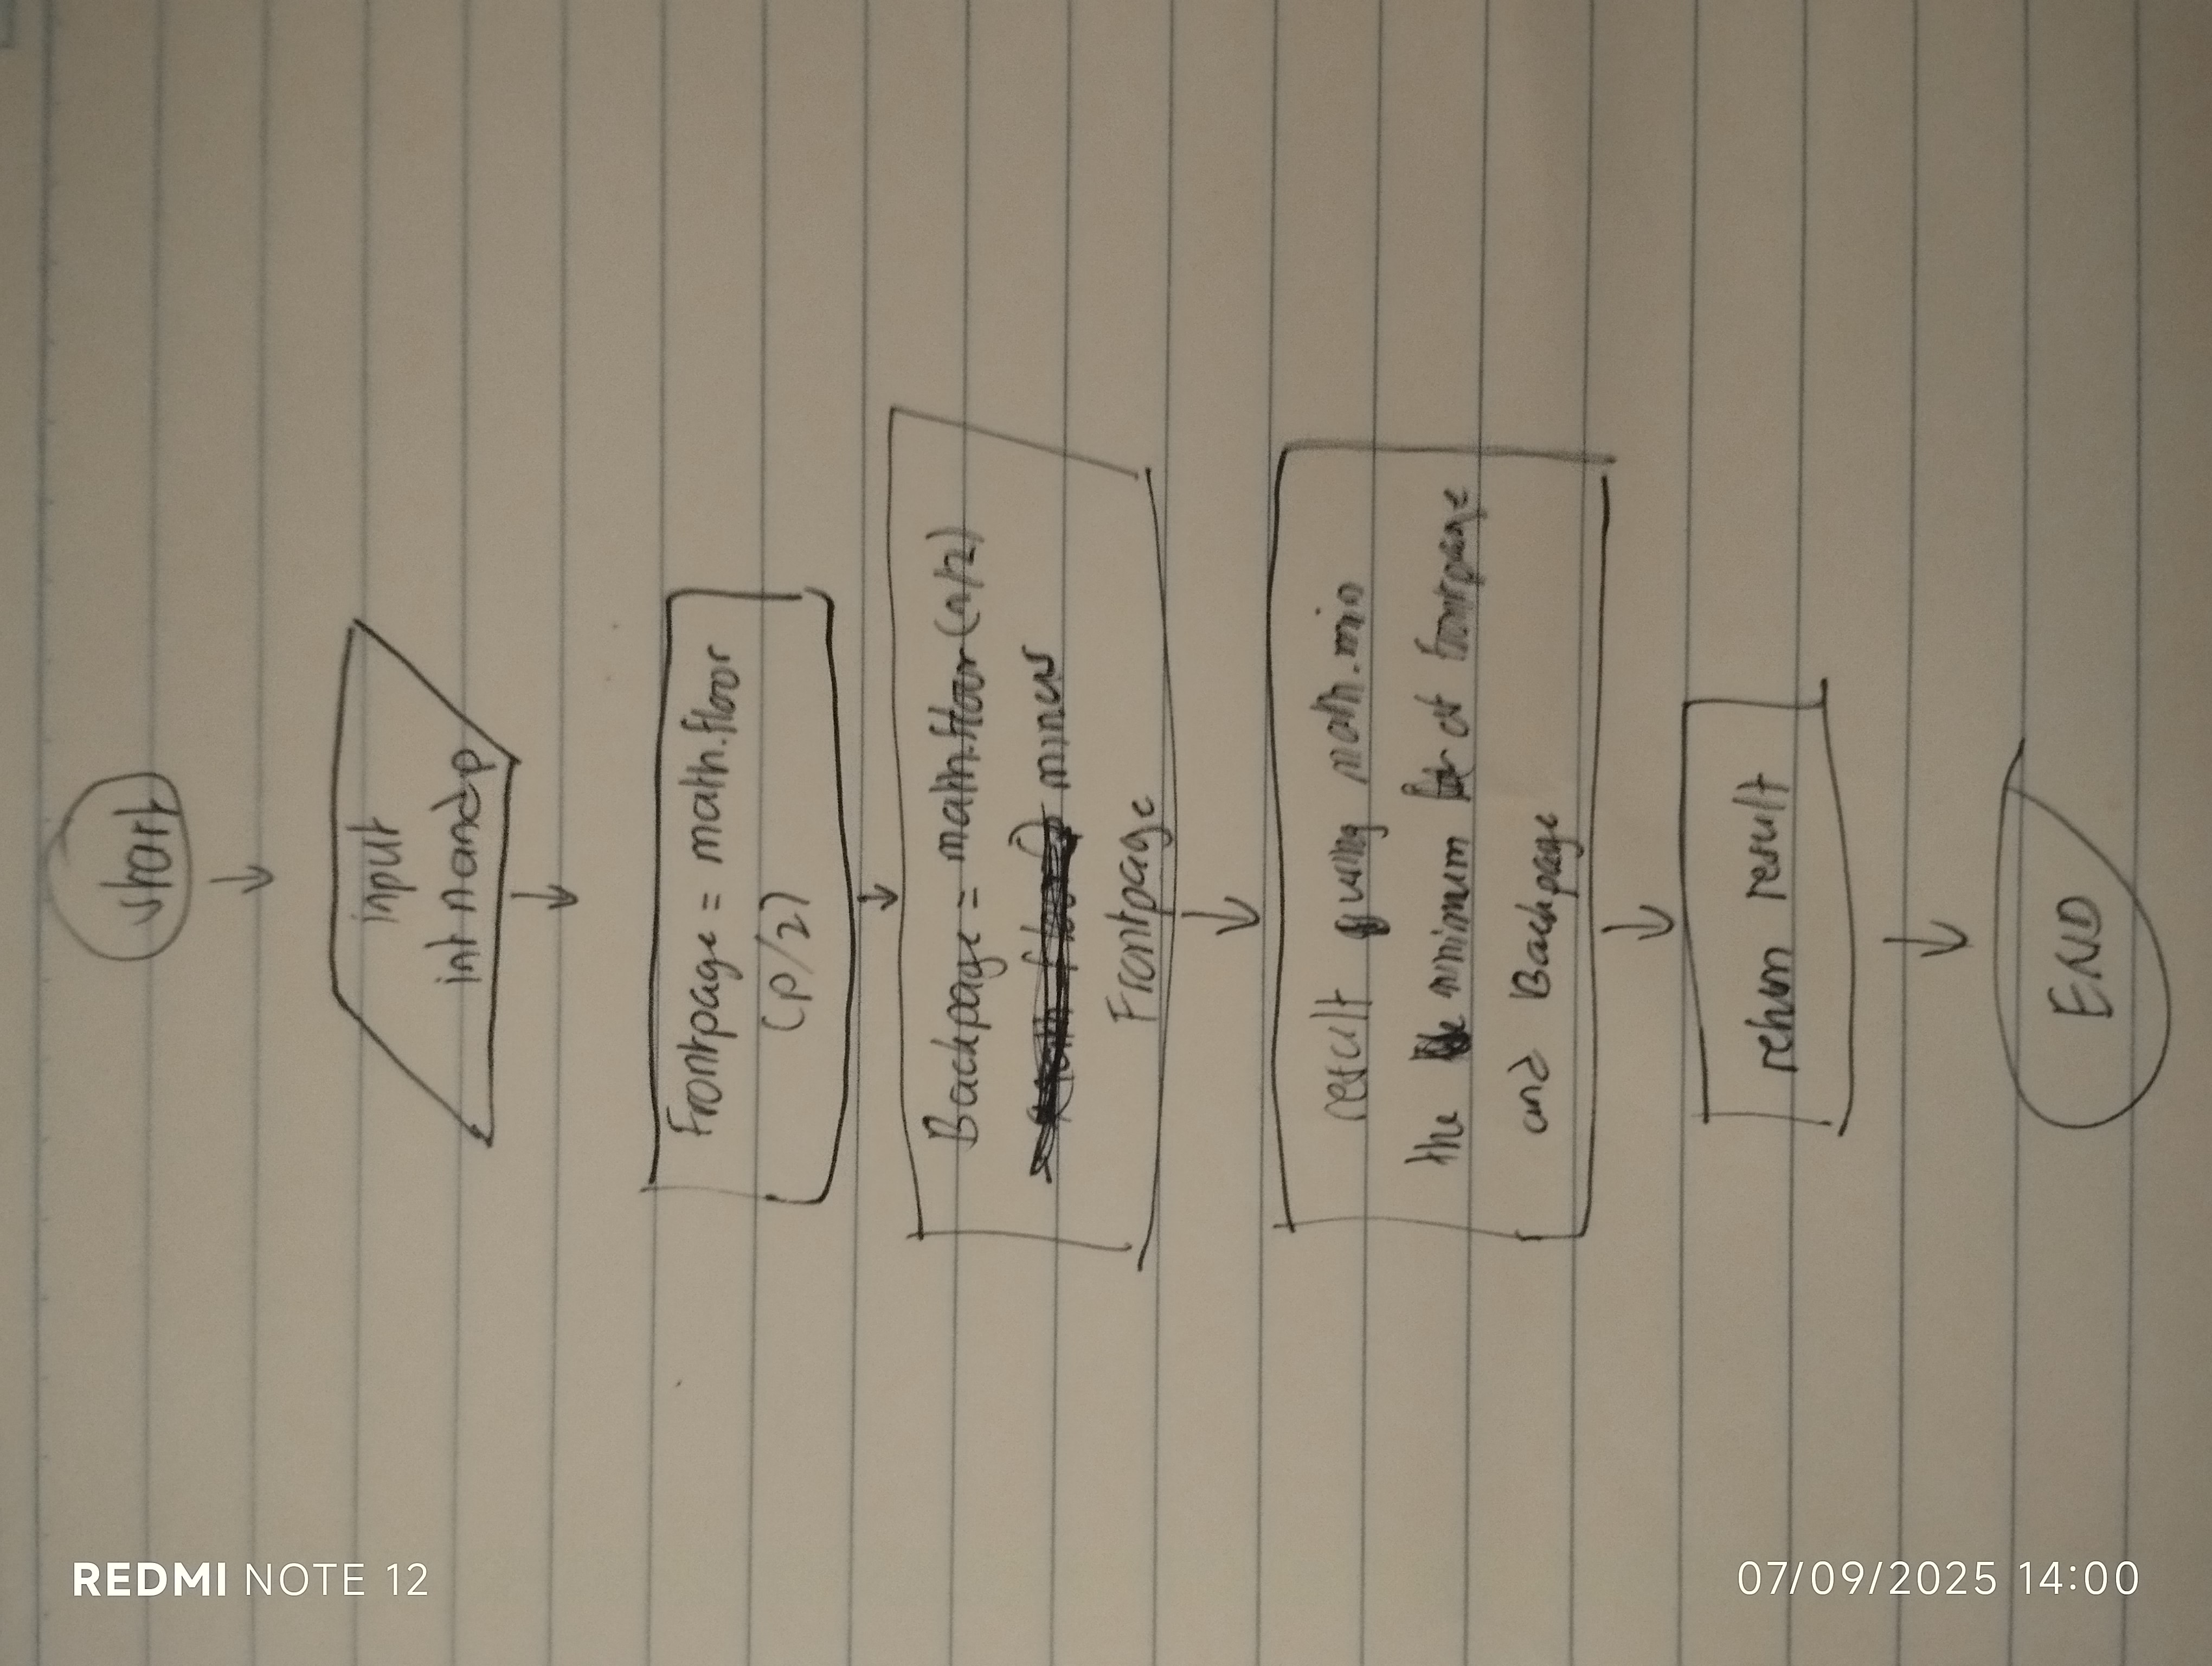 start
input
int n and p
Frontpage = math.floor
(p/2)
Backpage = math.floor (n/2)
minus
Frontpage
result using math.min
the minimum of frontpage
and Backpage
return result
END
REDMI NOTE 12
07/09/2025 14:00